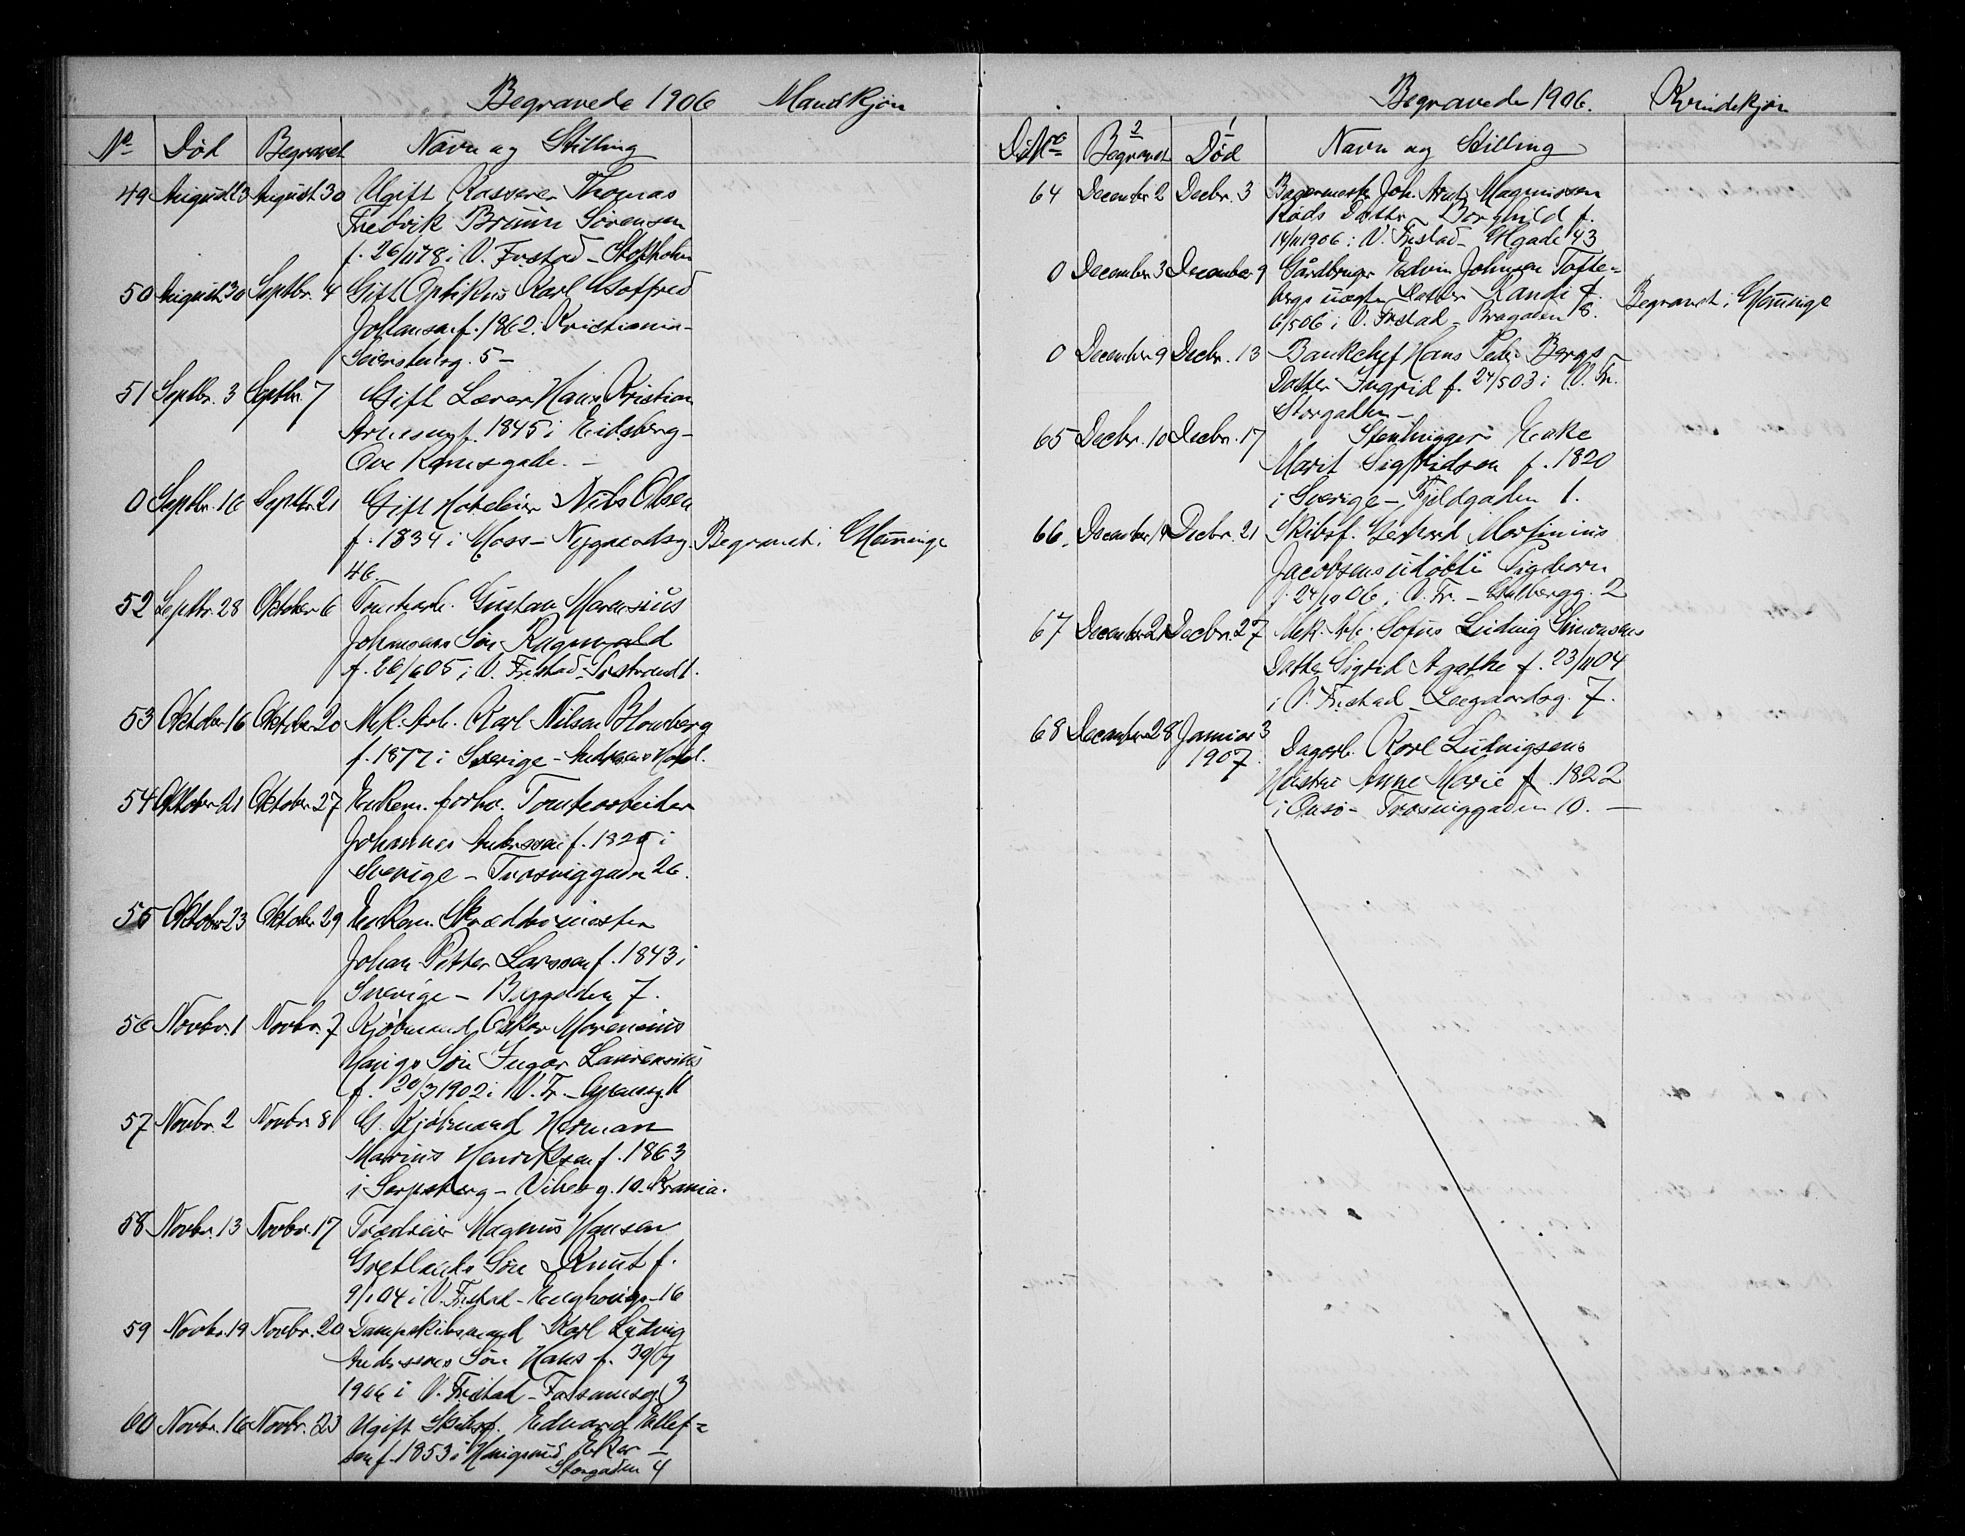 Begravede 1906 Mandkjøn
No Død Begravet Navn og Stilling
49 August 23 August 30 Ugift Kasserer Thomas
Fredrik Bruun Sørensen
f. 26/1178 i V. Frstad - Stokholm
50 August 30 Septbr. 4 Gift Optikus Karl Gotfred
Johansen f. 1862 i Kristiania -
5 -
51 Septbr. 3 Septbr. 7 Gift Lærer Hans Kristian
f. 1845 i Eidsberg -
Ove Ramsgade. -
0 Septbr. 16 Septbr. 21 Gift Hoteleier Nils Olsen
f. 1834 i Moss - Nygaardsg. Begravet i Glemminge
46.
52 Septbr. 28 Oktober 6 Tomtearb. Gustav Marensius
Johansens Søn Ragnvald
f. 26/605 i V. Frstad - 1.
53 Oktober 16 Oktober 20 Mek. Arb. Karl Nilsen Blomberg
f. 1877 i Sverige - Andersens Hotel.
54 Oktober 21 Oktober 27 Enkem. forhv. Tomtearbeider
Johannes Andersson f. 1825 i
Sverige - Trosviggaden 26.
55 Oktober 23 Oktober 29 Enkem. Skræddermester
Johan Petter Larsson f. 1843 i
Sverige - 7.
56 Novbr. 1 Novbr. 7 Kjøbmand Oskar Marensius
Haugs Søn Ingar Laurensius
f. 20/31902 i V. Fr. -
57 Novbr. 2 Novbr. 8 G. Kjøbmand Herman
Marius Henriksen f. 1863
i Sarpsborg - Vibesg. 10. Krania.
58 Novbr. 13 Novbr. 17 Magnus Hansen
Gretlands Søn Knut f.
9/104 i V. Frstad - 16
59 Novbr. 19 Novbr. 20 Dampskibsmand Karl Ludvig
Anderssens Søn Hans f.
1906 i V. Frstad - 3
60 Novbr. 16 Novbr. 23 Ugift Skibsf. Edvard Ellef=
sen f. 1853 i Haugsund Eker -
Storgaden 4
Begravede 1906. Kvindekjøn
2 1
No Begravet Død Navn og Stilling
64 December 2 Decbr. 3 Bagermester Joh. Arnt Magnussen
Røds Datter Borghild f.
14/111906 i V. Frstad - 43
0 December 3 December 9 Gårdbruger Edvin Johnsen Tofte=
bergs uægte Datter Randi f.
6/506 i V. Frstad - Bragaden 18. Begravet i Glemminge
0 December 9 Decbr. 13 Bankchef Hans Peder Bergs
Datter Ingrid f. 24/503 i V. Fr.
Storgaden -
65 Decbr. 10 Decbr. 17 Stenhugger Enke
Marit Sigfridsen f. 1820
i Sverige - Fjeldgaden 1.
66. December Decbr. 21 Skibsf. Gerhard Martinius
Jacobsens udøbte Pigebarn
f. 24/1006 i V. Fr. - 2
67 December 21 Decbr. 27 Mek. Arb. Sofus Ludvig Simonsens
Datter Sigrid Agathe f. 23/1104
i V. Frstad - Leegaardsg. 7.
68 December 28 Januar 3
1907 Dagarb. Karl Ludvigsens
Hustru Anne Marie f. 1822
i Onsø - Trosviggaden 10. -